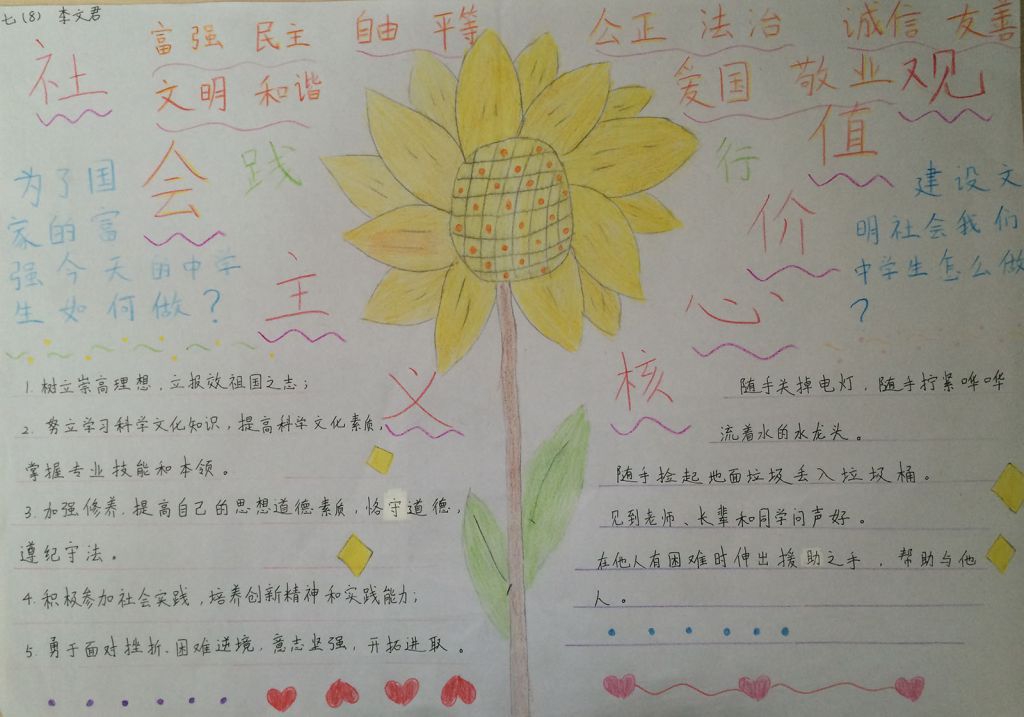 七(8) 李文君
富强 民主 自由 平等 公正 法治 诚信 友善
文明 和谐 爱国 敬业
社会主义核心价值观
践行
为了国
家的富
强今天的中学
生如何做？
建设文
明社会我们
中学生怎么做
？
1. 树立崇高理想，立报效祖国之志；
2. 努立学习科学文化知识，提高科学文化素质，
掌握专业技能和本领。
3. 加强修养，提高自己的思想道德素质，恪守道德，
遵纪守法。
4. 积极参加社会实践，培养创新精神和实践能力；
5. 勇于面对挫折、困难逆境，意志坚强，开拓进取。
随手关掉电灯，随手拧紧哗哗
流着水的水龙头。
随手捡起地面垃圾丢入垃圾桶。
见到老师、长辈和同学问声好。
在他人有困难时伸出援助之手，帮助与他
人。